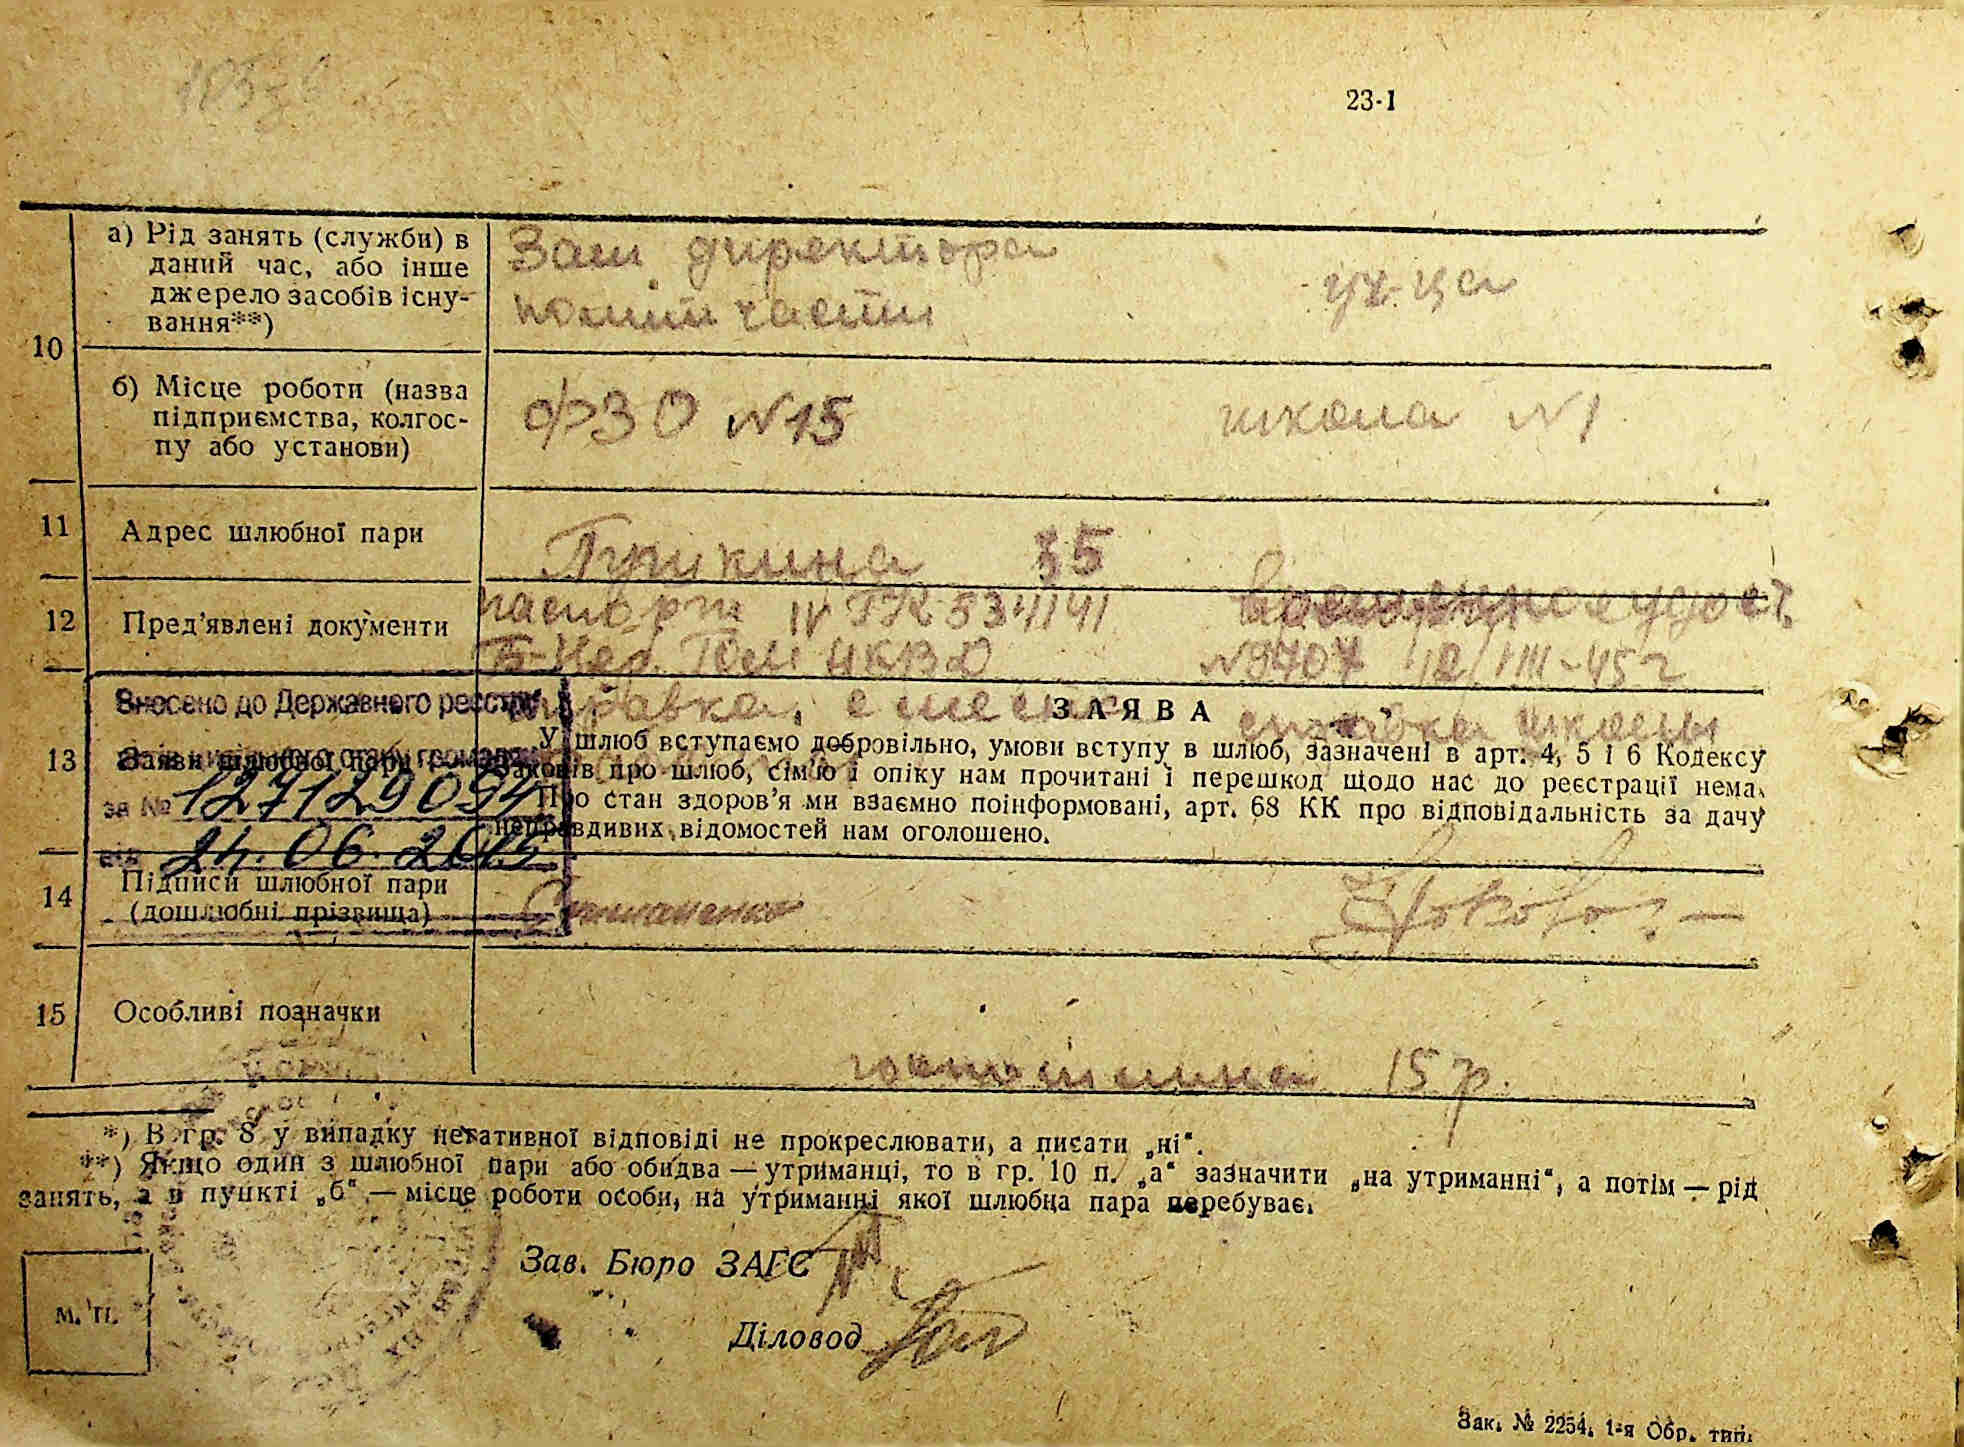 23-1
10
а) Рід занять (служби) в
даний час, або інше
джерело засобів існу-
вання**)
Зам директора
полит части
уч-ца
б) Місце роботи (назва
підприємства, колгос-
пу або установи)
ФЗО №15
школа №1
11
Адрес шлюбної пари
Пушкина 35
12
Пред'явлені документи
паспорт IV
НКВД
№9707 12/VIII-45 г
справка с места
справка школы
Внесено до Державного реєстру
за № 12712909
від 24.06.
13
Заява шлюбної пари
ЗАЯВА
У шлюб вступаємо добровільно, умови вступу в шлюб, зазначені в арт. 4, 5 і 6 Кодексу
законів про шлюб, сім'ю і опіку нам прочитані і перешкод щодо нас до реєстрації нема.
Про стан здоров'я ми взаємно поінформовані, арт. 68 КК про відповідальність за дачу
неправдивих відомостей нам оголошено.
14
Підписи шлюбної пари
(дошлюбні прізвища)
15
Особливі позначки
госпошлина 15 р.
*) В гр. 8 у випадку негативної відповіді не прокреслювати, а писати „ні“.
**) Якщо один з шлюбної пари або обидва — утриманці, то в гр. 10 п. „а“ зазначити „на утриманні“, а потім — рід
занять, а в пункті „б“ — місце роботи особи, на утриманні якої шлюбна пара перебуває.
Зав. Бюро ЗАГС
Діловод
М. П.
Зак. № 2254. 1-я Обр. тип.